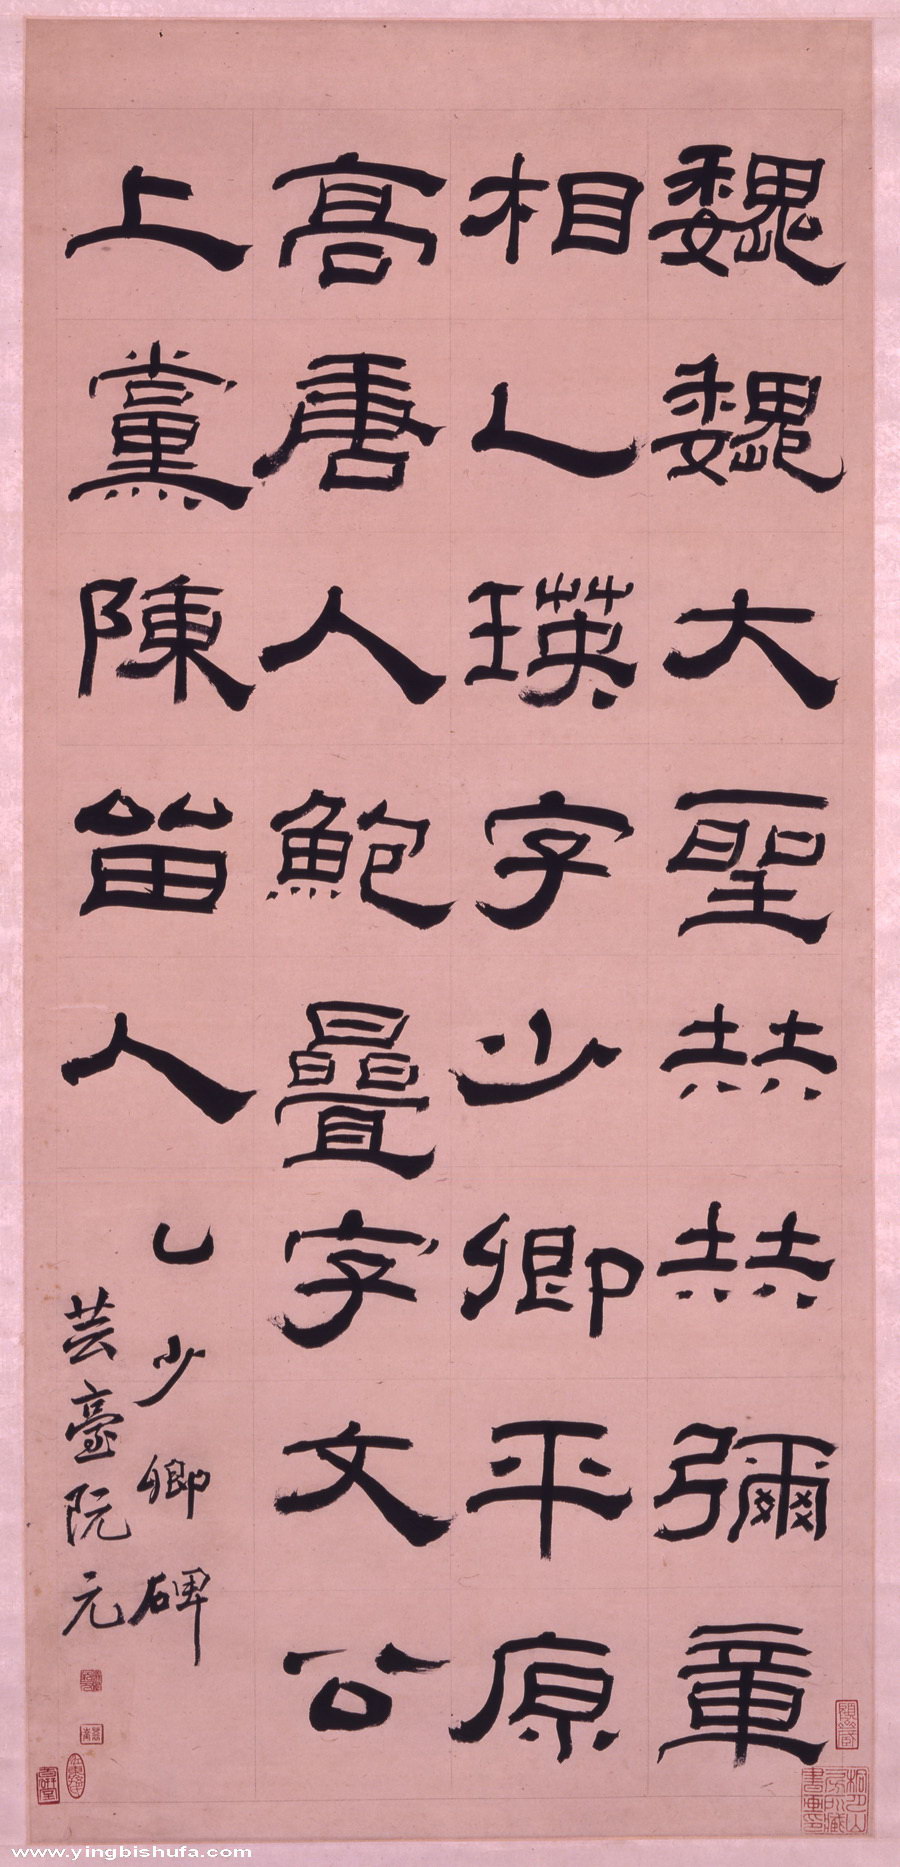 巍巍大聖赫赫彌章
相乙瑛字少卿平原
高唐人鮑疊字文公
上黨陳留人
乙少卿碑
芸臺阮元
www.yingbishufa.com